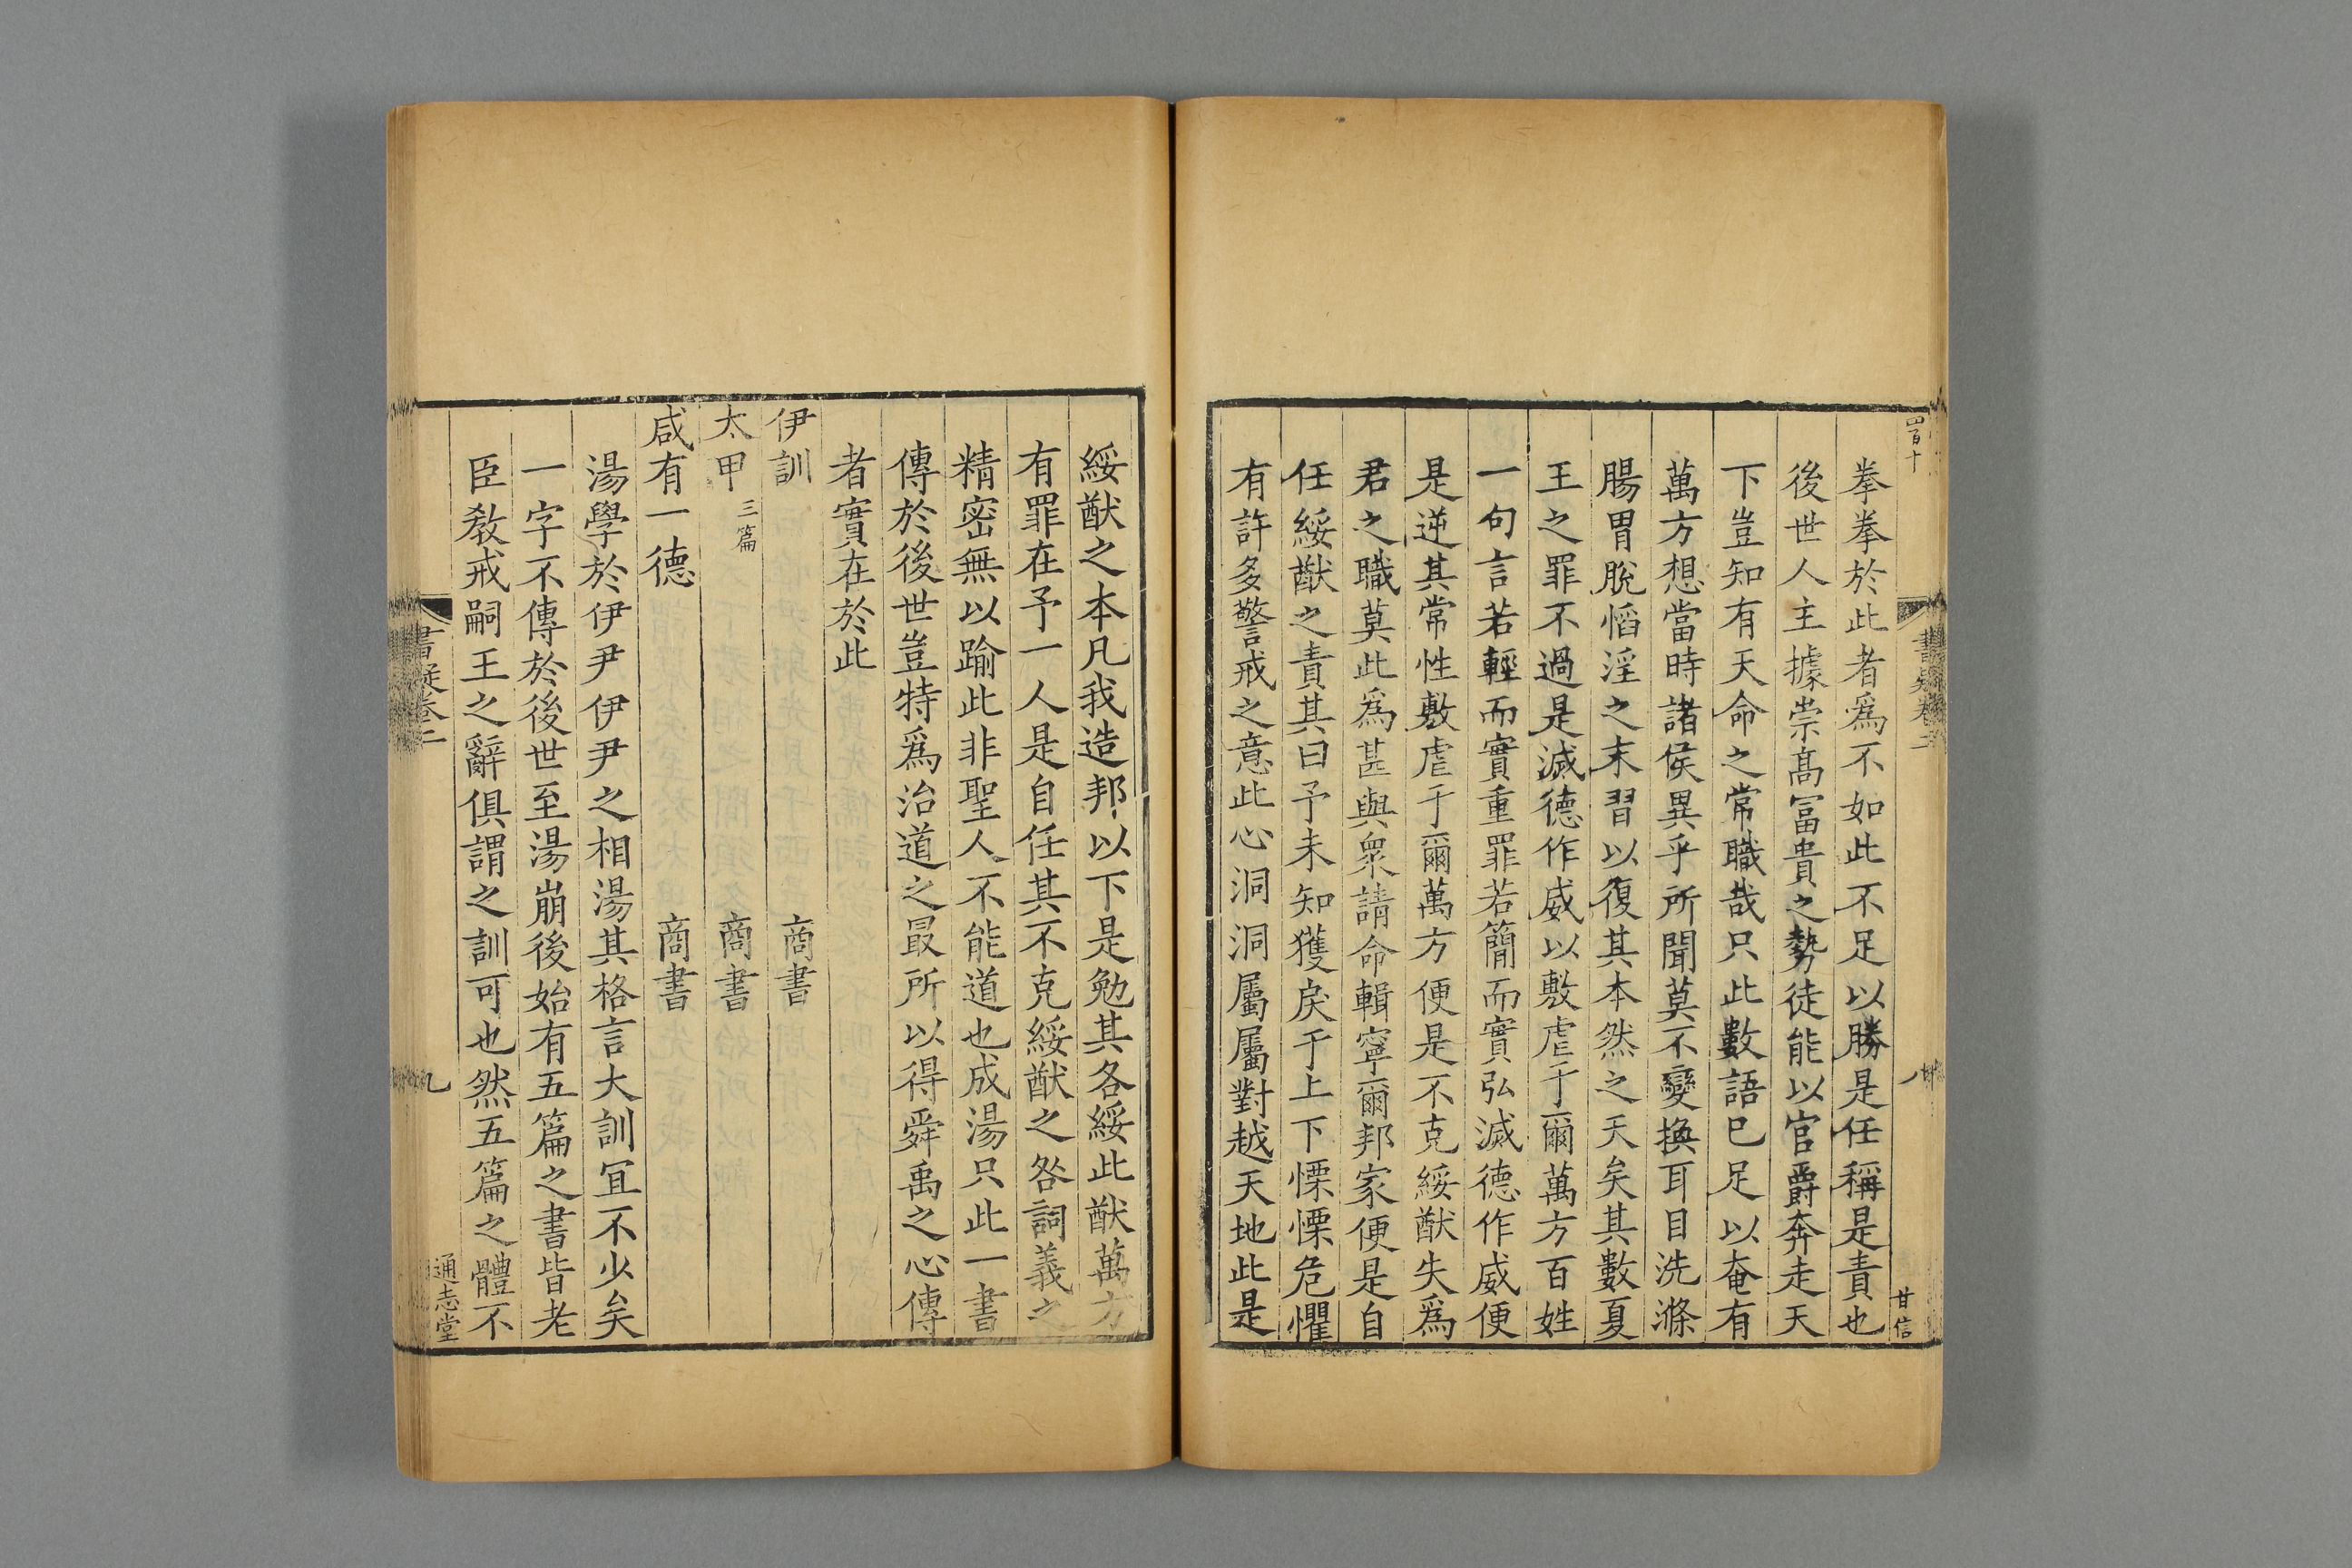 四百十
書疑卷二
八
甘信
拳拳於此者爲不如此不足以勝是任稱是責也
後世人主據崇髙冨貴之勢徒能以官爵奔走天
下豈知有天命之常職哉只此數語已足以奄有
萬方想當時諸侯異乎所聞莫不變換耳目洗滌
腸胃脫慆淫之末習以復其本然之天矣其數夏
王之罪不過是滅德作威以敷虐于爾萬方百姓
一句言若輕而實重罪若簡而實弘滅德作威便
是逆其常性敷虐于爾萬方便是不克綏猷失爲
君之職莫此爲甚與衆請命輯寧爾邦家便是自
任綏猷之責其曰予未知獲戾于上下慄慄危懼
有許多警戒之意此心洞洞屬屬對越天地此是
綏猷之本凡我造邦以下是勉其各綏此猷萬方
有罪在予一人是自任其不克綏猷之咎詞義之
精密無以踰此非聖人不能道也成湯只此一書
傳於後世豈特爲治道之最所以得舜禹之心傳
者實在於此
伊訓 商書
太甲三篇 商書
咸有一德 商書
湯學於伊尹伊尹之相湯其格言大訓冝不少矣
一字不傳於後世至湯崩後始有五篇之書皆老
臣敎戒嗣王之辭俱謂之訓可也然五篇之體不
書疑卷二
九
通志堂